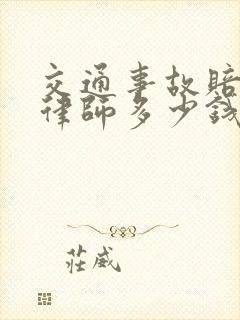 交通事故賠
律師多少錢
莊威